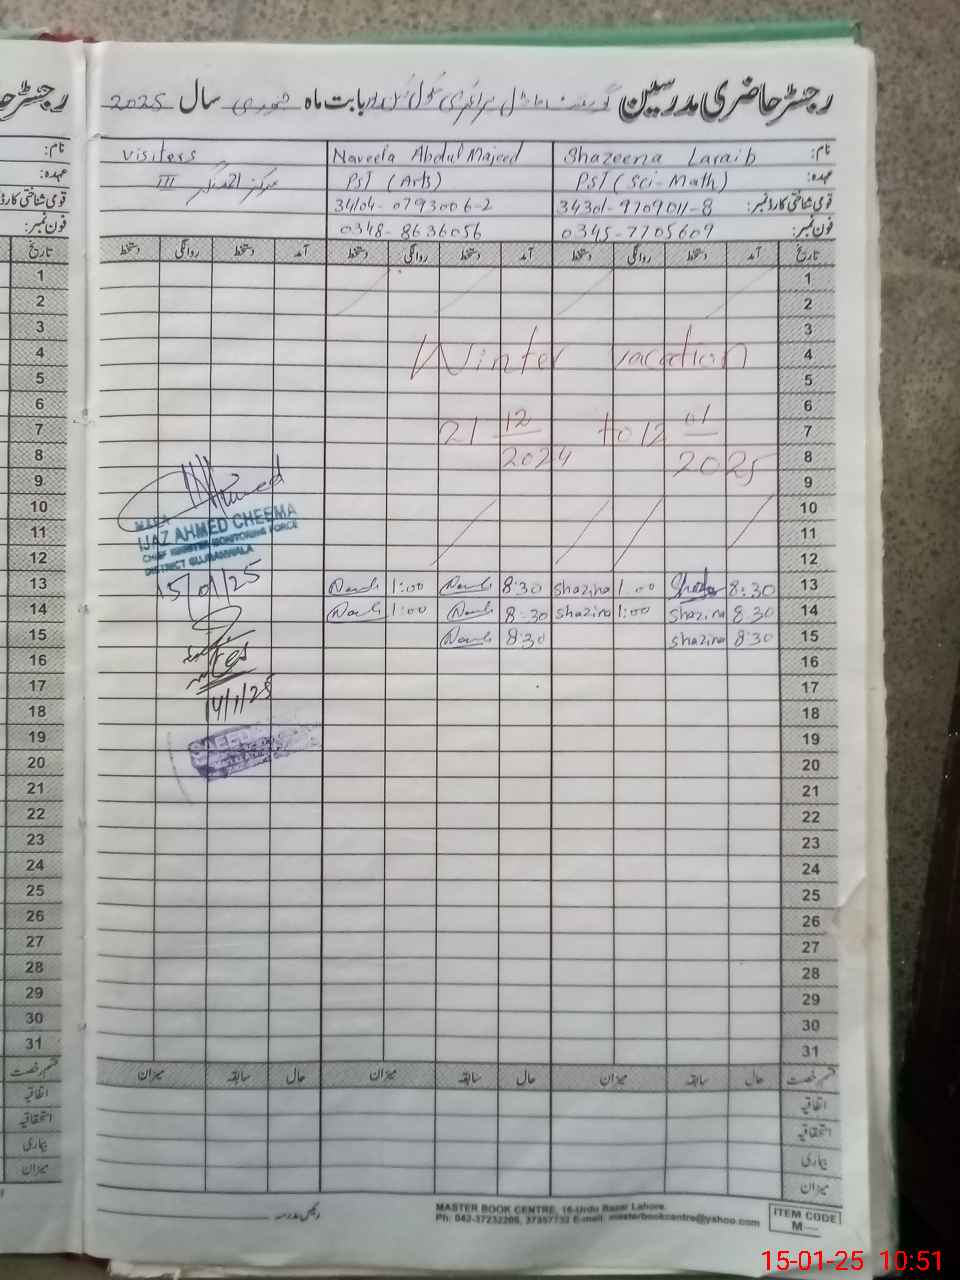 رجسٹر حاضری مدرسین گورنمنٹ ماڈل پرائمری سکول بابت ماہ جنوری سال 2025
نام: Shazeena Laraib Naveela Abdul Majeed Visiters
عہدہ: PST (Sci-Math) PST (Arts) مرکز احمد نگر III
قومی شناختی کارڈ نمبر: 34301-9709011-8 34104-0793006-2
فون نمبر: 0345-7705609 0348-8636056
تاریخ آمد دستخط روانگی دستخط آمد دستخط روانگی دستخط آمد دستخط روانگی دستخط تاریخ
1 1
2 2
3 3
4 Winter vacation 4
5 5
6 6
7 21 12/2024 to 12 01/2025 7
8 8
9 9
10 10
11 11
12 12
Ahmed
IJAZ AHMED CHEEMA
CHIEF MINISTER MONITORING FORCE
DISTRICT GUJRANWALA
15/01/25
13 1:00 8:30 shazina 1:00 8:30 13
14 1:00 8:30 shazina 1:00 shazina 8:30 14
15 8:30 shazina 8:30 15
16 16
17 17
14/1/25
18 18
19 19
20 20
21 21
22 22
23 23
24 24
25 25
26 26
27 27
28 28
29 29
30 30
31 31
قسم رخصت حال سابقہ میزان حال سابقہ میزان حال سابقہ میزان قسم رخصت
اتفاقیہ اتفاقیہ
استحقاقیہ استحقاقیہ
بیماری بیماری
میزان میزان
رئیس مدرسہ
MASTER BOOK CENTRE, 16-Urdu Bazar Lahore.
Ph: 042-37232206, 37357732 E-mail: masterbookcentre@yahoo.com
ITEM CODE
M—
15-01-25 10:51